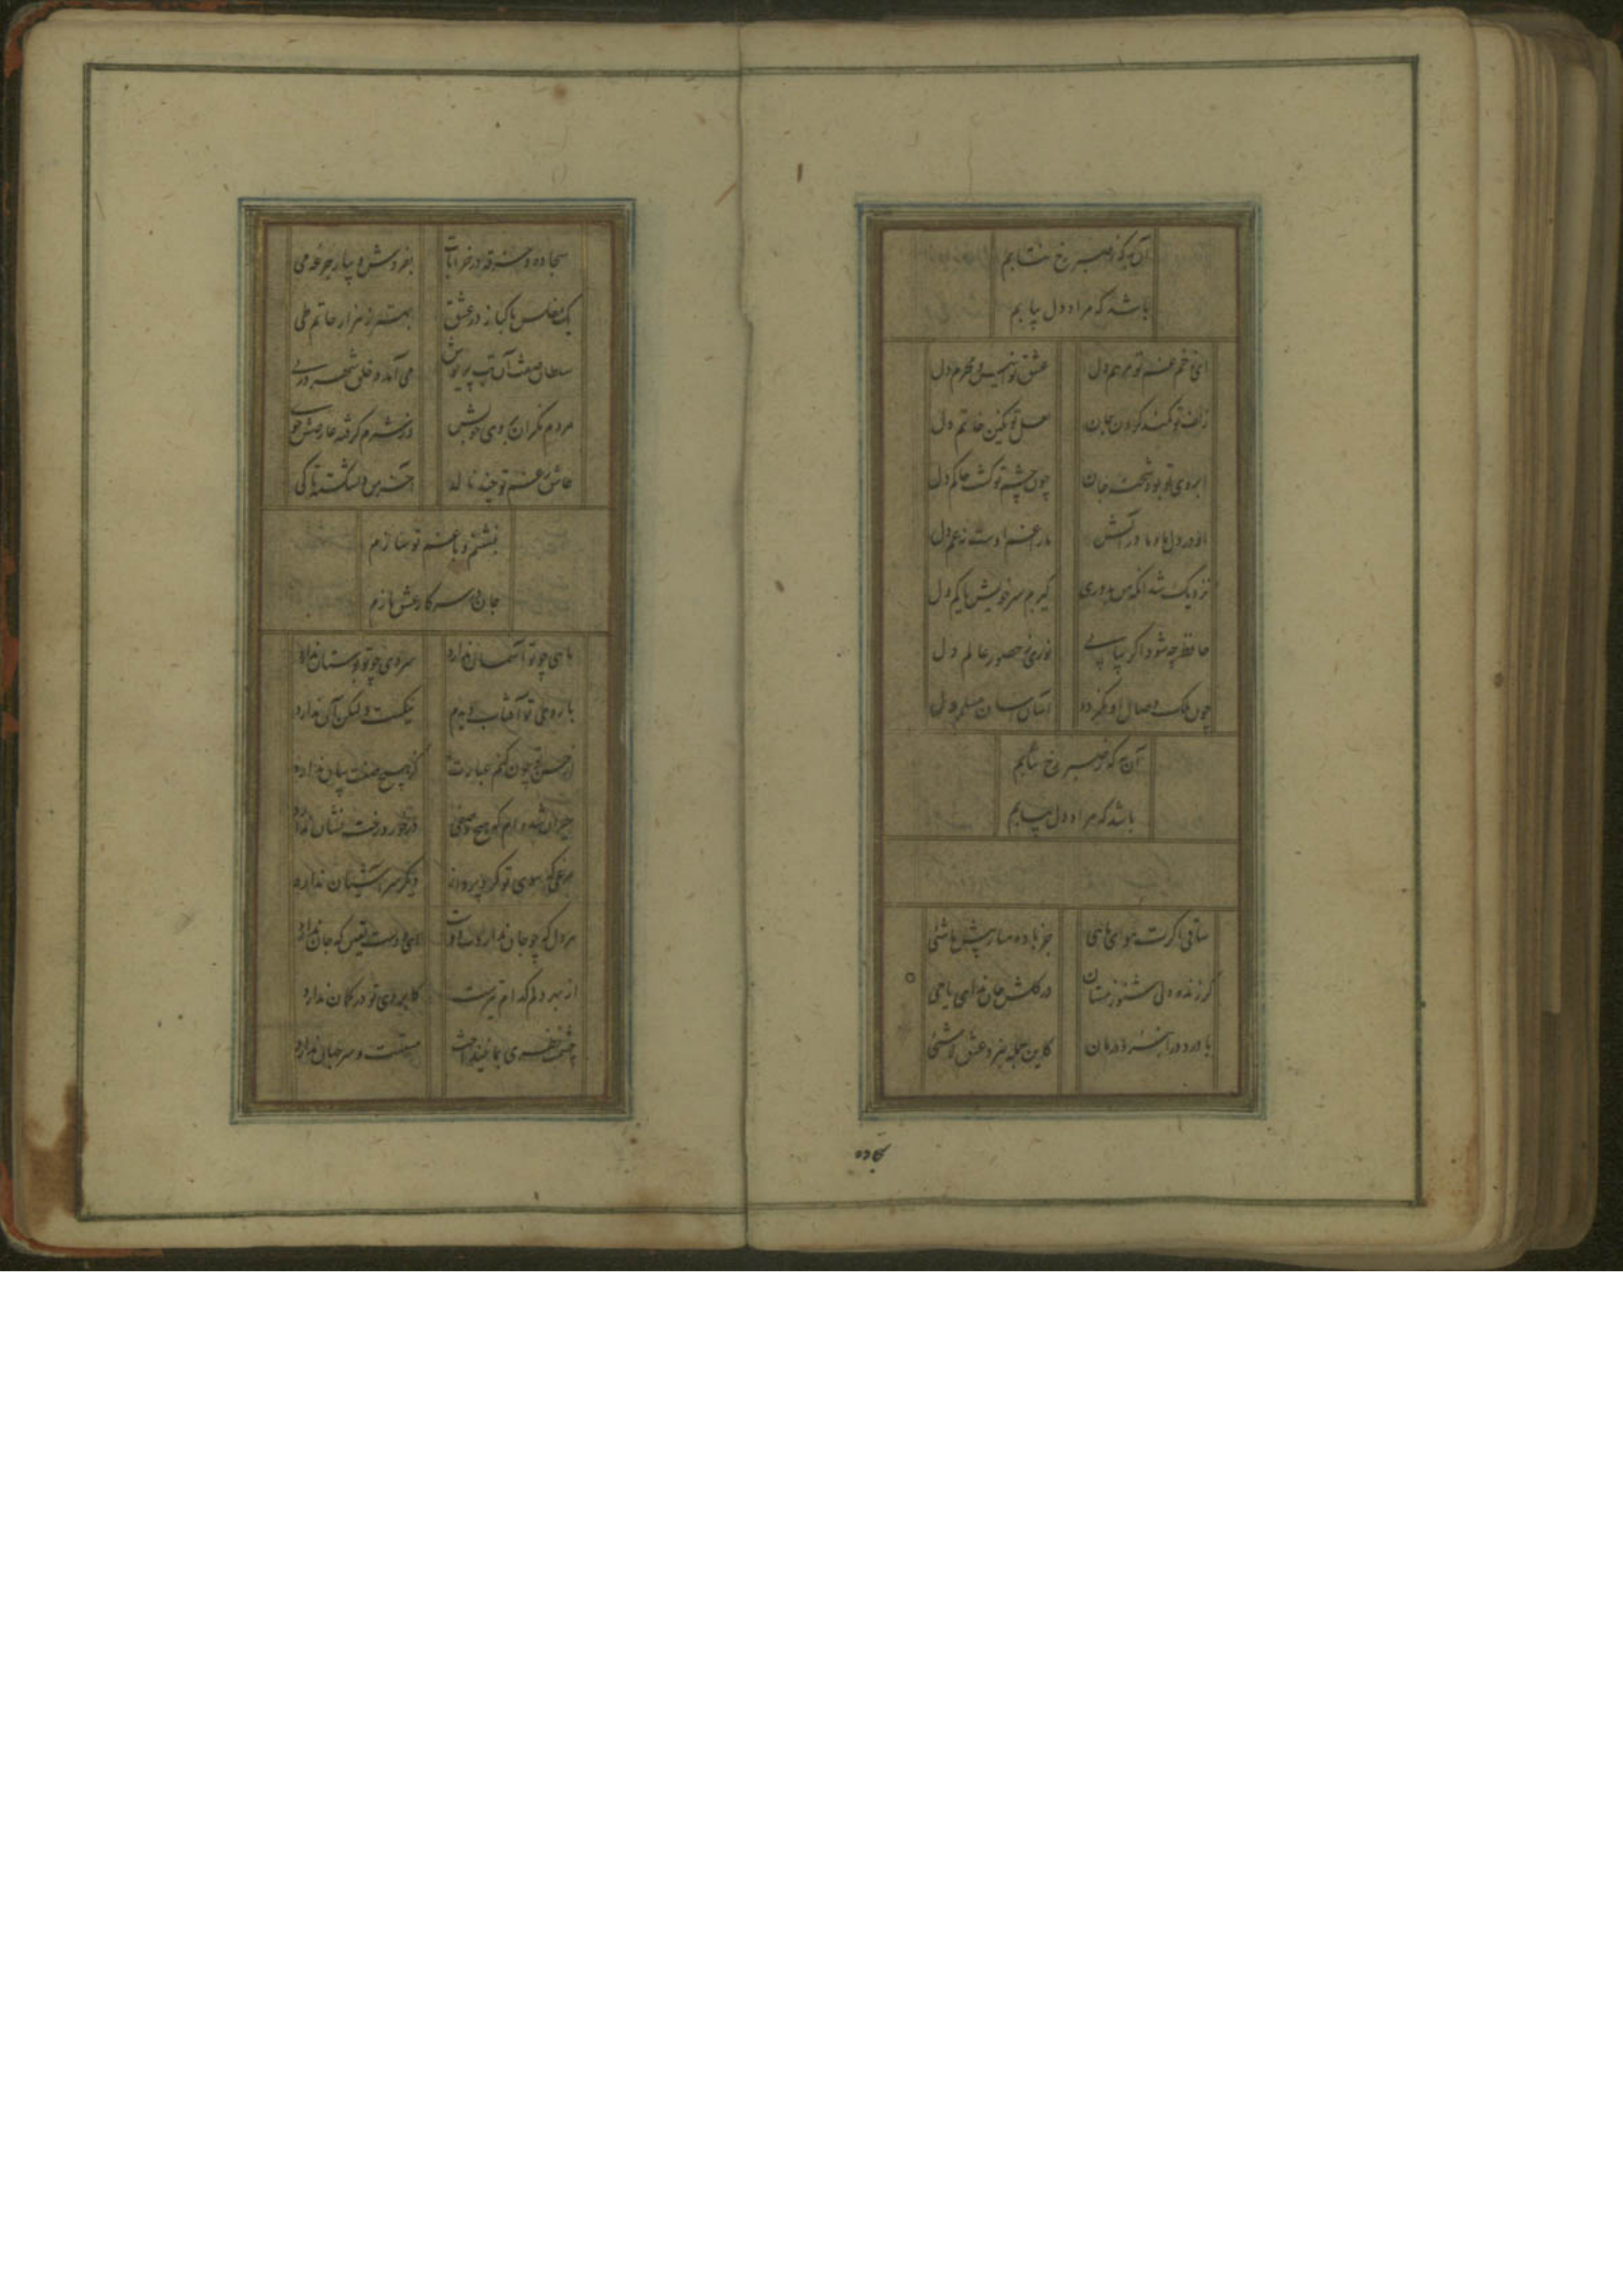 آن به که ز صبر رخ نتابم
باشد که مراد دل بیابم
ای زخم غم تو مرهم دل عشق تو انیس و محرم دل
زلف تو کمند کردن جان لعل تو نگین خاتم دل
ابروی تو بود شحنه جان چون چشم تو گشت حاکم دل
او در دل ما و ما در آتش ما را غم اوست نه غم دل
نزدیک شد آنکه من به دوری گیرم سر خویش یا کم دل
حافظ چه شود اگر بیابی نوری ز حضور عالم دل
چون ملک وصال او نگردد آسان آسان مسلم دل
آن به که ز صبر رخ نتابم
باشد که مراد دل بیابم
ساقی اگرت هوای ماهی جز باده میار پیش ما شی
گر زنده دلی شنو ز مستان در گلشن جان ندای یا حی
با درد درآ درمان کاین جمله به نزد عشق لا شی
سجاده
سجاده و خرقه در خرابات بفروش و بیار جرعه می
یک مفلس پاکباز در عشق بهتر ز هزار حاتم طی
سلطان صفت آن بت پریوش می آمد و خلق شهر در پی
مردم نگران به روی خوبش وز شرم گرفته عارضش خوی
حافظ ز غم تو چند نالد آخر من دلشکسته تا کی
بنشینم و با غم تو سازم
جان در سر کار عشق بازم
ماهی چو تو آسمان ندارد سروی چو تو بوستان ندارد
با روی تو آفتاب دیدم نیکست ولیکن آن ندارد
از حسن تو چون کنم عبارت کو هیچ صفت بیان ندارد
حیران شده ام که هیچ وصفی در خورد رخت نشان ندارد
مرغی که به سوی تو کرد پرواز دیگر سر آشیان ندارد
هر دل که چو جان ندارد دوست ای دوست یقین که جان ندارد
از بهر دلم کدام تیرست کابروی تو در کمان ندارد
چشمت نظری به ما نینداخت مستست و سر جهان ندارد